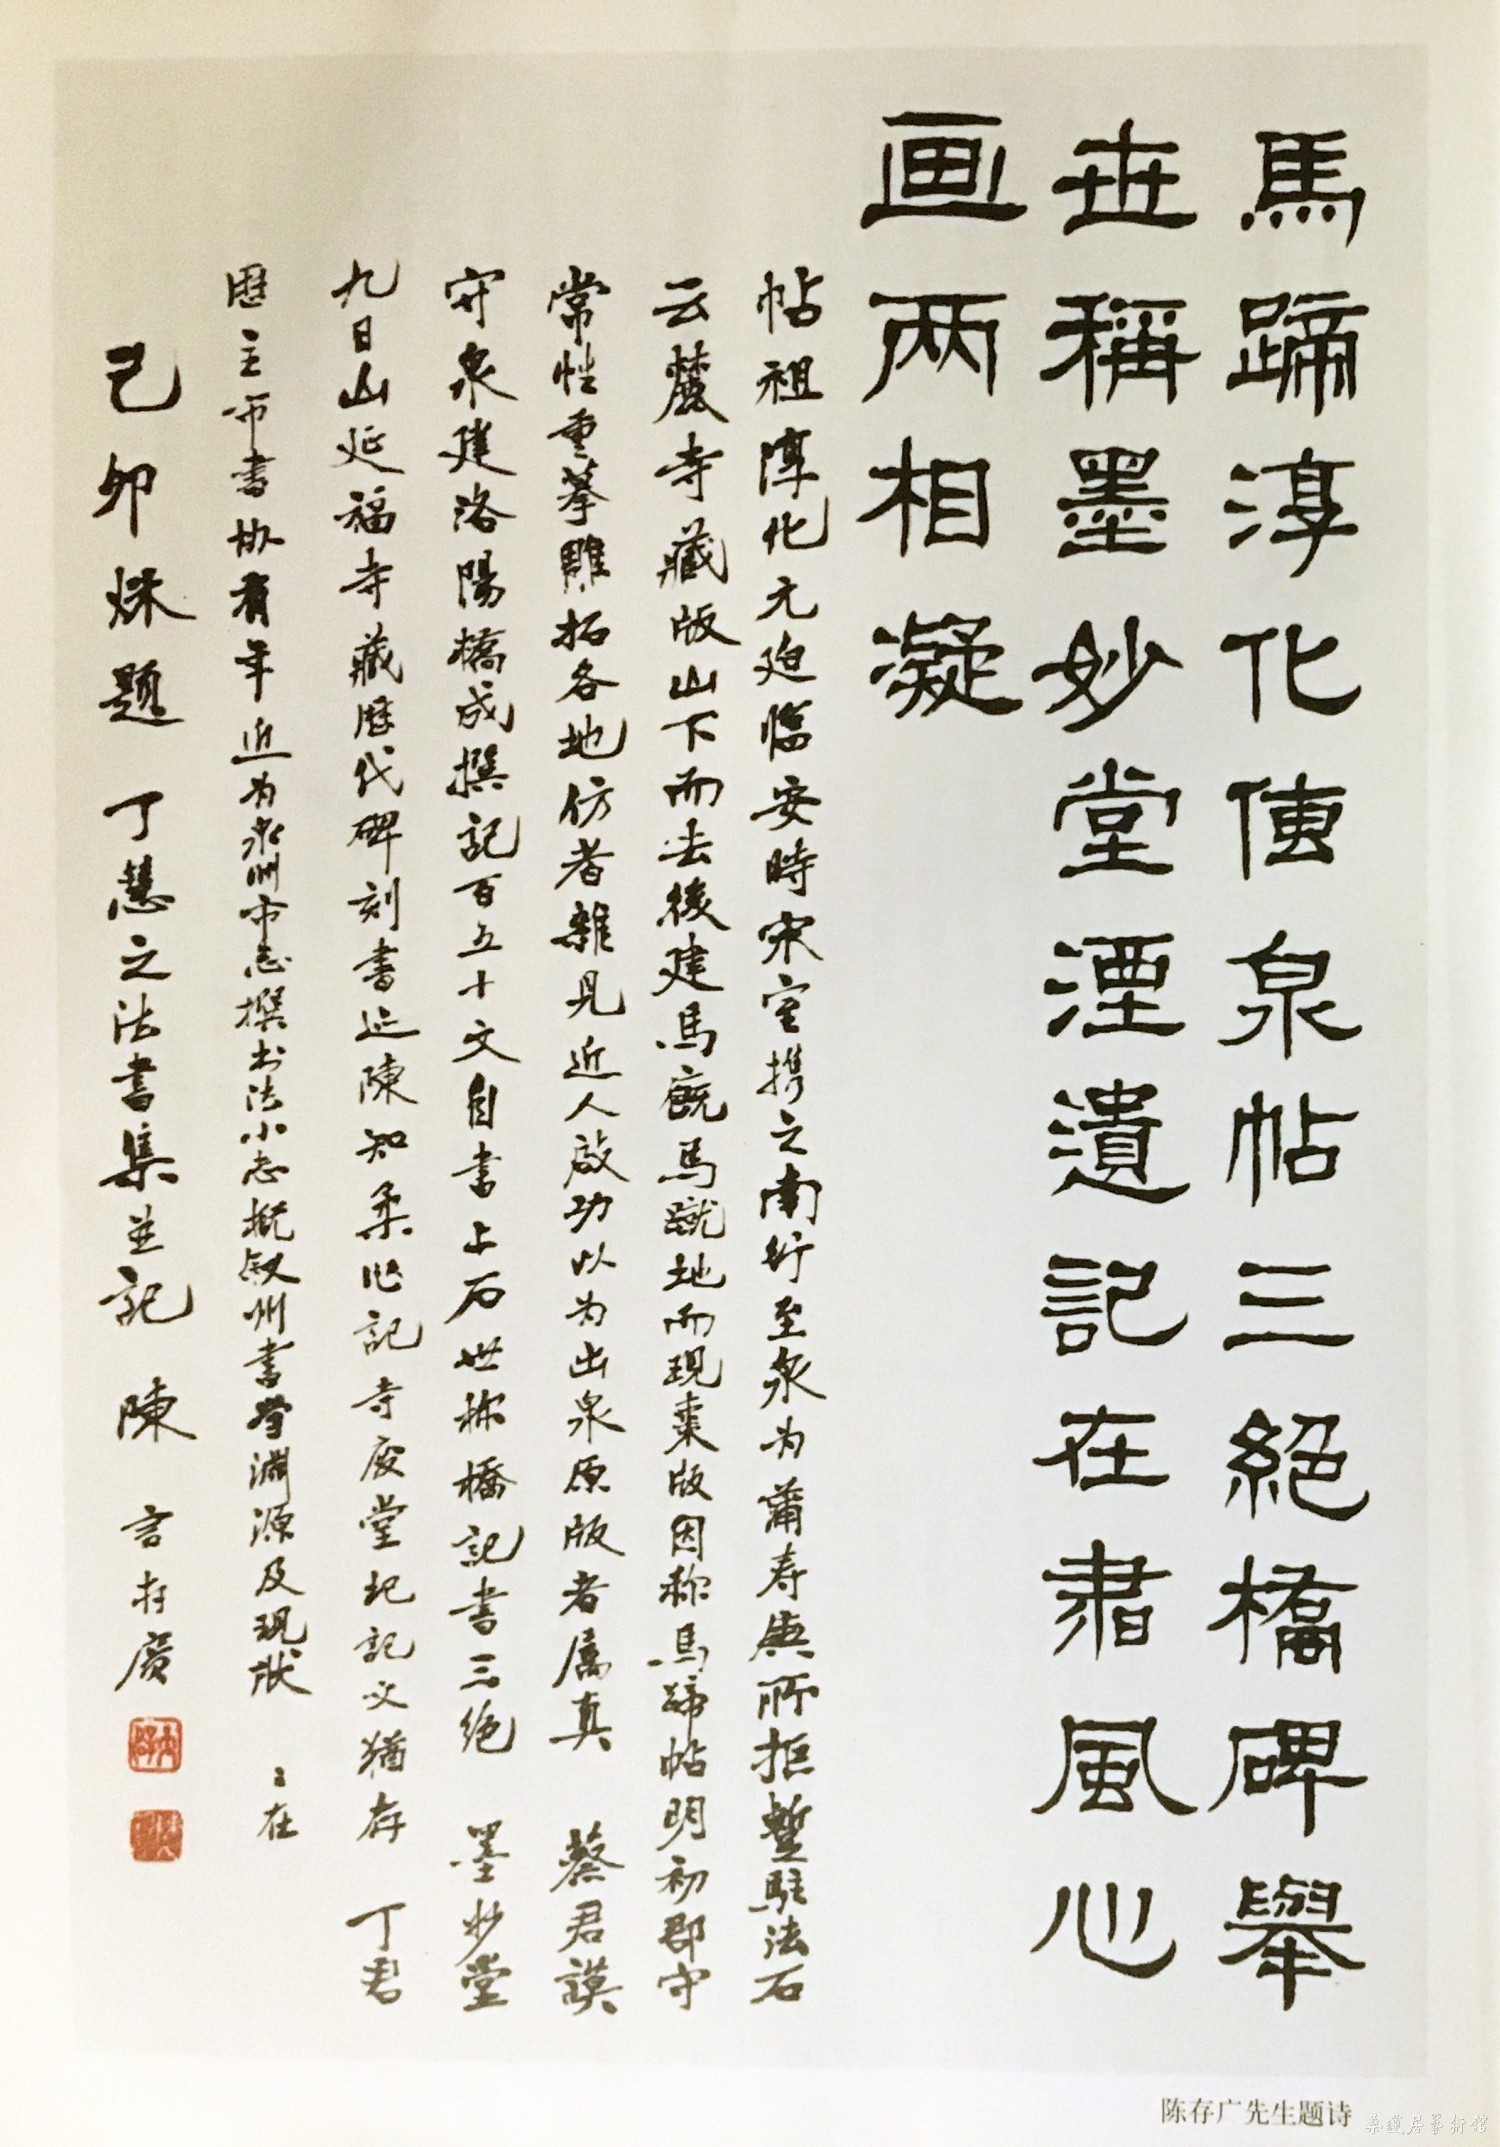 馬蹄淳化傳泉帖三絕橋碑舉
世稱墨妙堂湮遺記在肅風心
画两相凝
帖祖淳化元迫臨安時宋室携之南行至泉为蒲寿庚所拒暫駐法石
云麓寺藏版山下而去後建馬廐馬蹴地而現棗版因称馬蹄帖明初郡守
常性重摹雕拓各地仿者雜見近人啟功以为出泉原版者属真 蔡君謨
守泉建洛陽橋成撰記百五十文自書上石世称橋記書三绝 墨妙堂
九日山延福寺藏歷代碑刻書迹陳知柔作記寺廢堂圮記文猶存 丁君
歷主市書协有年近为泉州市志撰书法小志概叙州書学渊源及现状 在
己卯秌題 丁慧之法書集並記 陳 言存廣
陈存广先生题诗